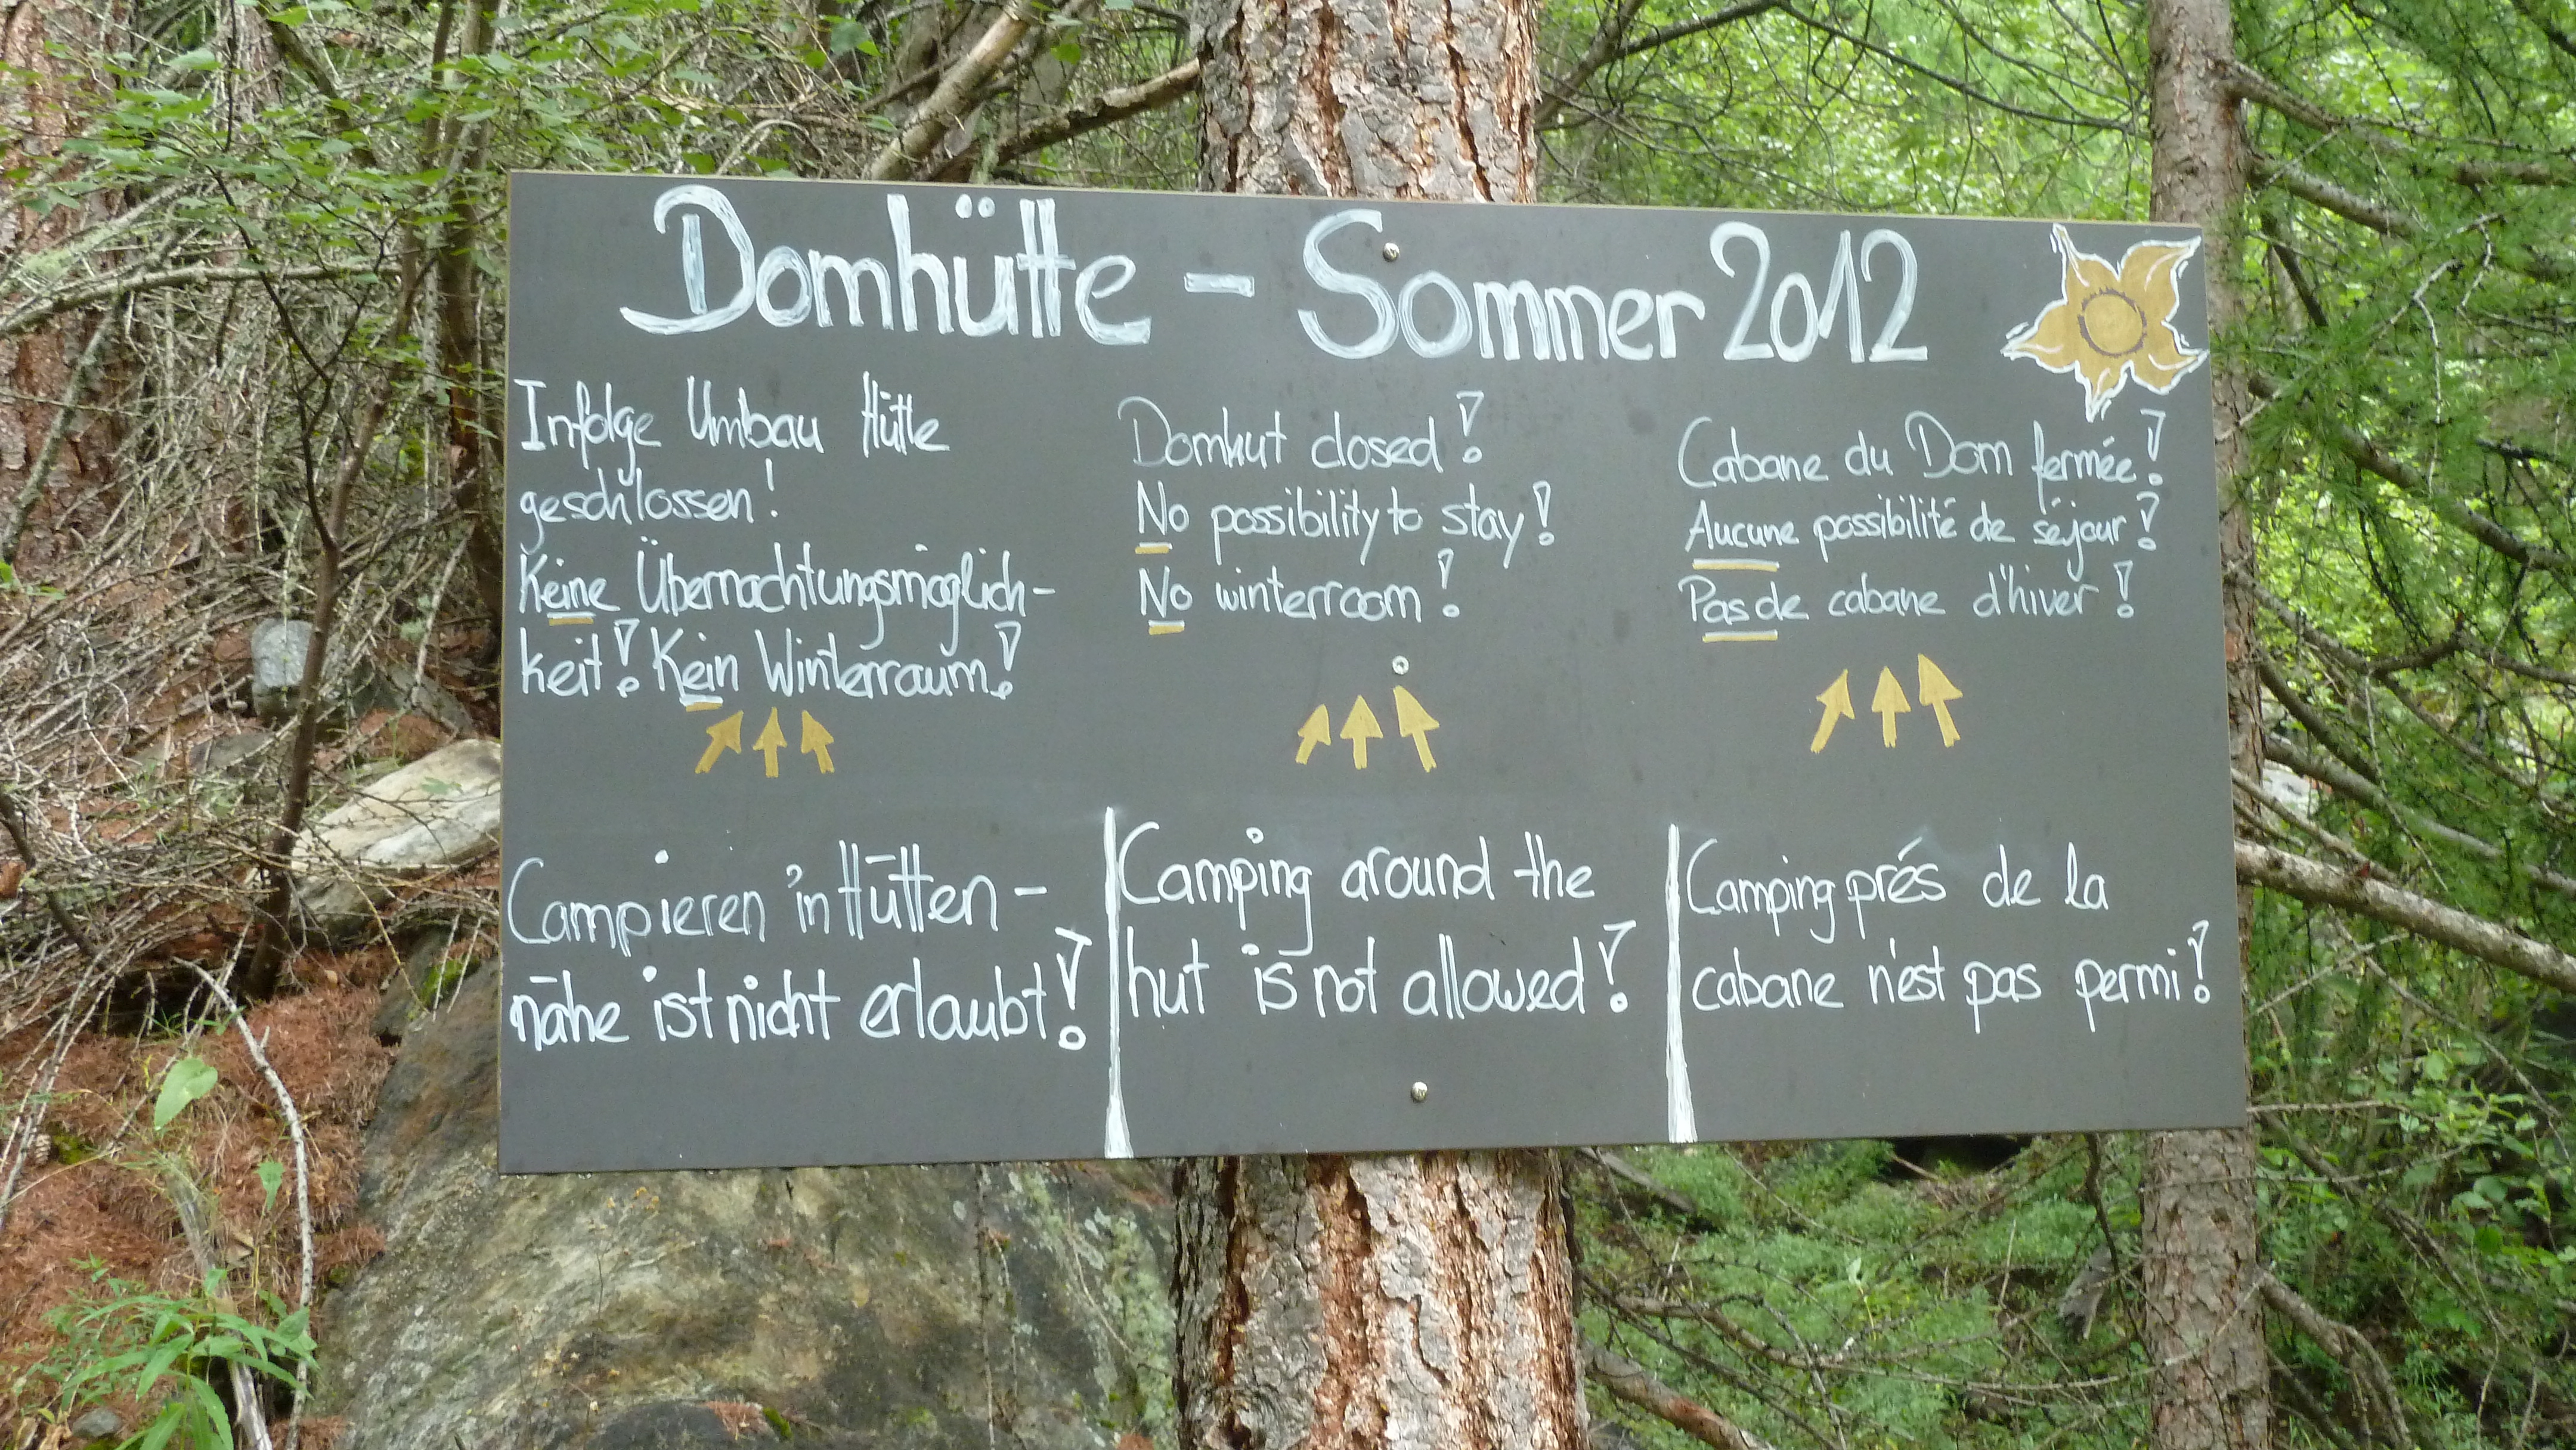 Domhütte - Sommer 2012
Infolge Umbau Hütte
geschlossen!
Keine Übernachtungsmöglich-
keit! Kein Winterraum!
Domhut closed!
No possibility to stay!
No winterroom!
Cabane du Dom fermée!
Aucune possibilité de séjour!
Pas de cabane d'hiver!
Campieren in Hütten-
nähe ist nicht erlaubt!
Camping around the
hut is not allowed!
Camping prés de la
cabane n'est pas permi!